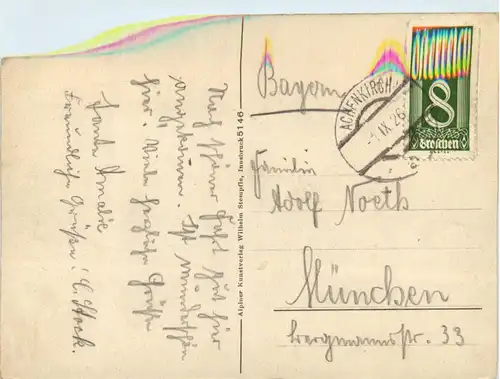 Nach schöner Fahrt gut hier
angekommen. Ist wunderschön
hier. Viele herzliche Grüße
Tante Amalie
Freundliche Grüße! C. Stock.
Alpiner Kunstverlag Wilhelm Stempfle, Innsbruck 5146
Bayern
ACHENKIRCH
-1.IX.26
8
Groschen
Familie
Adolf Noeth
München
Bergmannstr. 33